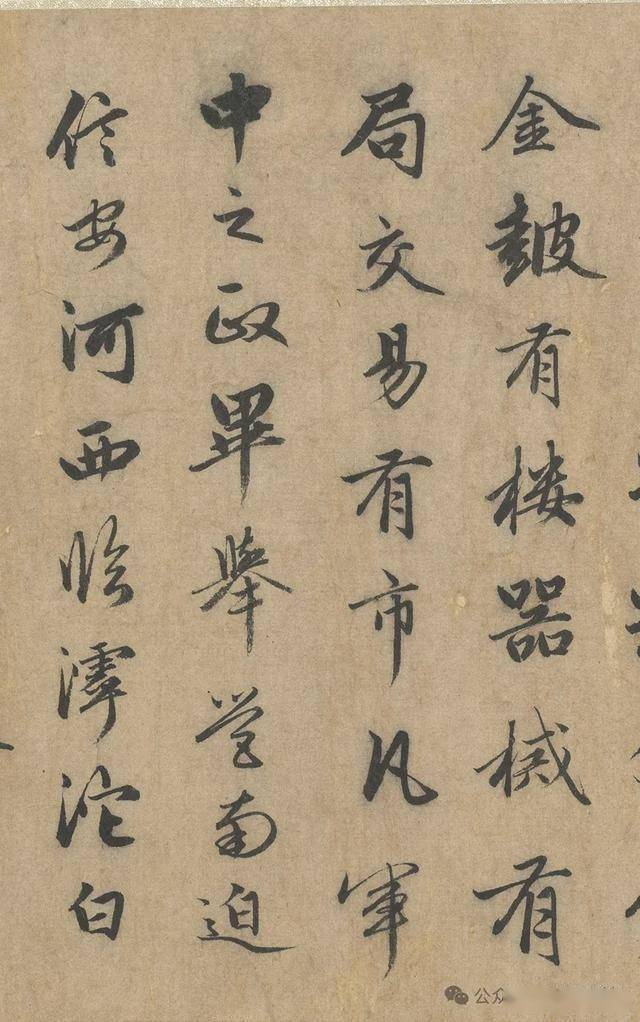 金皷有楼器械有
局交易有市凡軍
中之政畢舉營南迫
信安河西臨滹沱白
公众